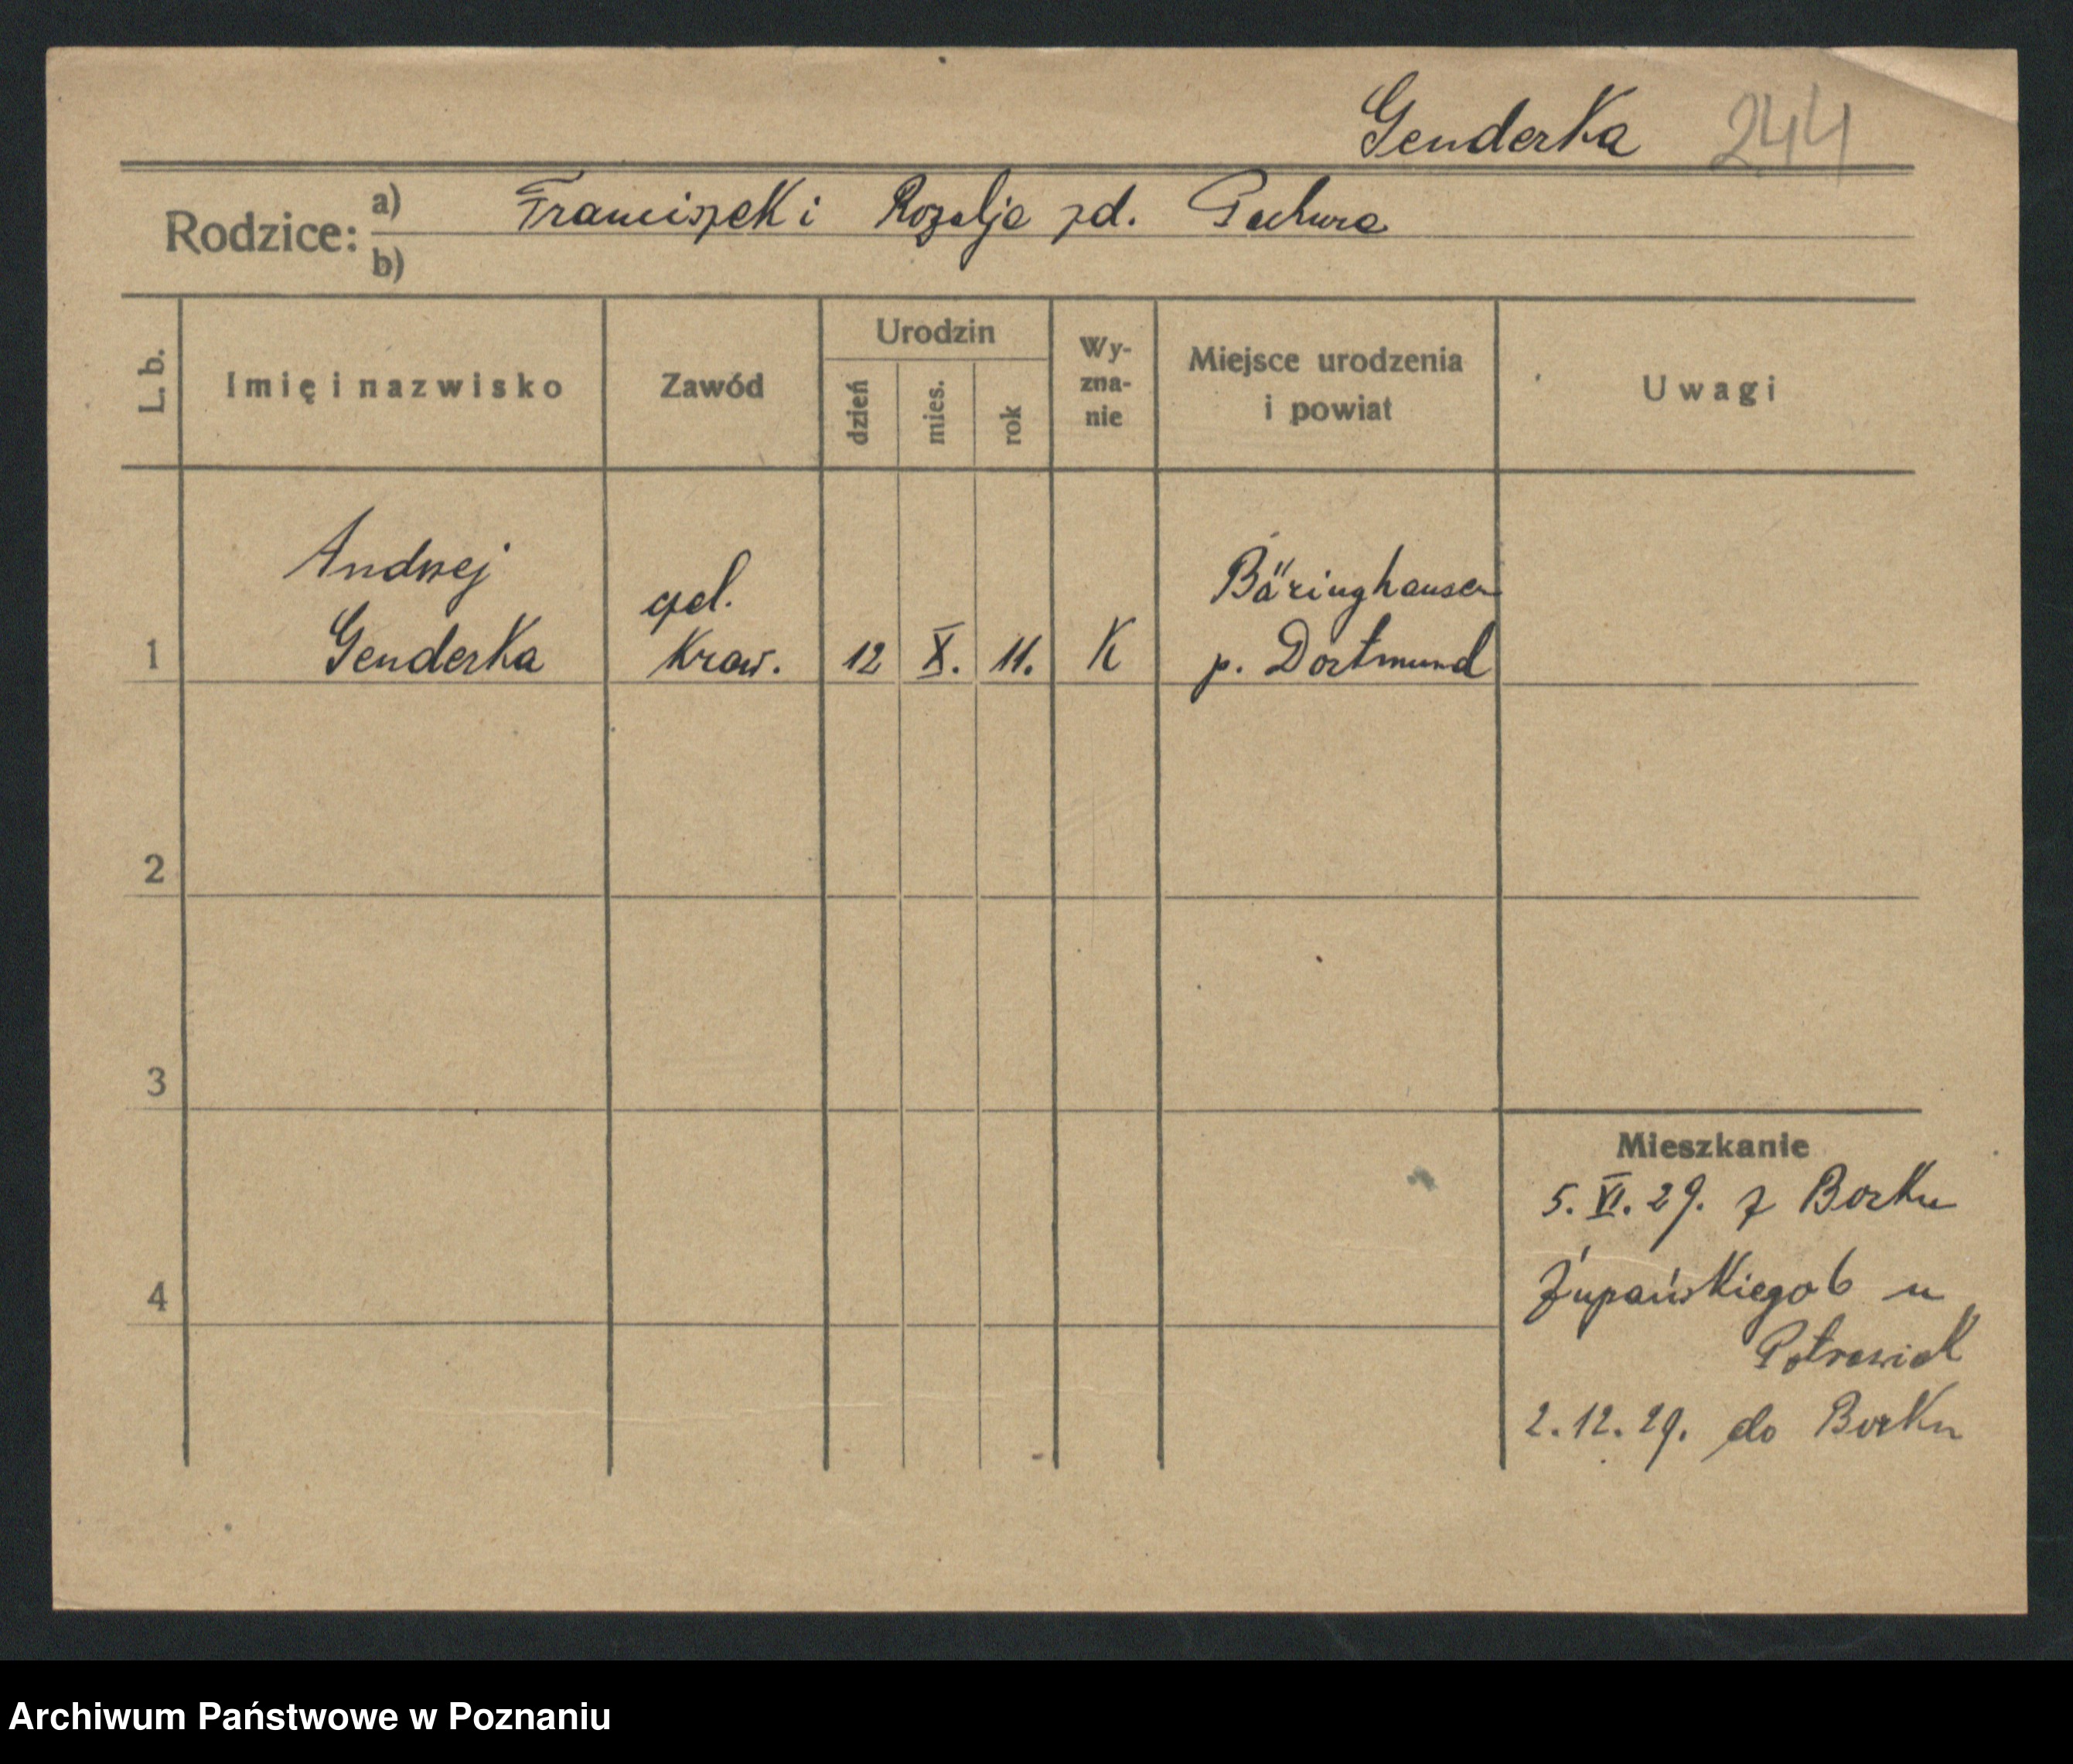 Genderka 244
Rodzice: a) Franciszek i Rozalja zd. Pachura
b)
L. b. Imię i nazwisko Zawód Urodzin dzień mies. rok Wy-zna-nie Miejsce urodzenia i powiat Uwagi
Andrzej
Genderka
czel.
Kraw.
1 12 X. 11. K
Bäringhausen
p. Dortmund
2
3
4
Mieszkanie
5. VI. 29. z Borku
Żupańskiego 6 u
Potrawiak
2. 12. 29. do Borku
Archiwum Państwowe w Poznaniu